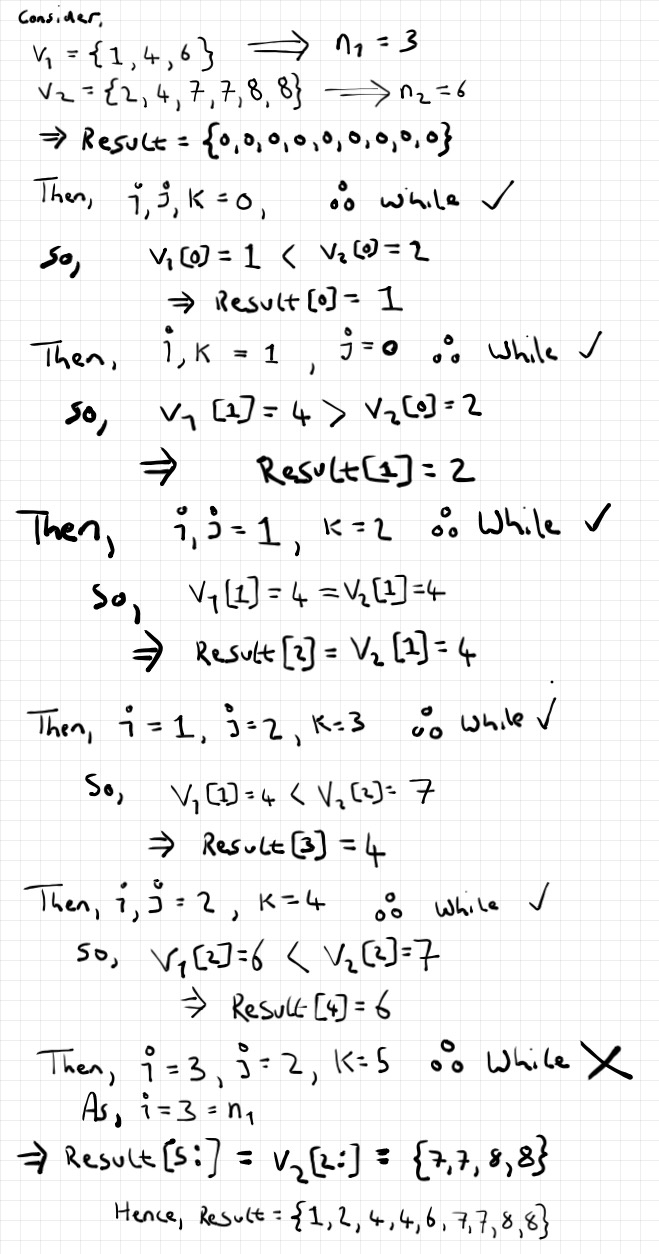 Consider,
V₁ = {1, 4, 6} ⟹ n₁ = 3
V₂ = {2, 4, 7, 7, 8, 8} ⟶ n₂ = 6
⇒ Result = {0,0,0,0,0,0,0,0,0}
Then, i, j, K = 0, ∴ while ✓
So, V₁[0] = 1 < V₂[0] = 2
⇒ Result[0] = 1
Then, i, K = 1, j = 0 ∴ While ✓
So, V₁[1] = 4 > V₂[0] = 2
⇒ Result[1] = 2
Then, i, j = 1, K = 2 ∴ While ✓
So, V₁[1] = 4 = V₂[1] = 4
⇒ Result[2] = V₂[1] = 4
Then, i = 1, j = 2, K = 3 ∴ While ✓
So, V₁[1] = 4 < V₂[2] = 7
⇒ Result[3] = 4
Then, i, j = 2, K = 4 ∴ While ✓
So, V₁[2] = 6 < V₂[2] = 7
⇒ Result[4] = 6
Then, i = 3, j = 2, K = 5 ∴ While ✗
As, i = 3 = n₁
⇒ Result[5:] = V₂[2:] = {7, 7, 8, 8}
Hence, Result = {1, 2, 4, 4, 6, 7, 7, 8, 8}